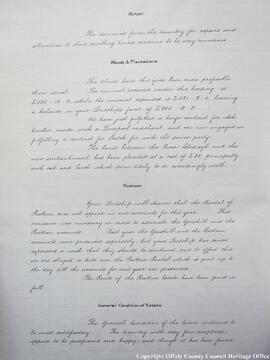 REPORT
The demands from the tenantry for repairs and
alterations to their dwelling houses continue to be very numerous.
Woods & Plantations
The Woods have this year been more profitable
than usual. The amount received under this heading is
while the amount expended is leaving
a balance in your Lordship's favor of
We have just completed a large contract for oak
timber, made with a Liverpool merchant, and are now engaged in
fulfilling a contract for Scotch fir with the same party.
The lands between the River Clodiagh and the
new embankment has been planted at a cost of principally
with oak and larch which seem likely to do exceedingly well.
Rosbeen
Your Lordship will observe that the Rental of
does not appear in our accounts for this year. This
was necessary in order to the Geashill and the
accounts. Last year the Geashill and the
accounts were presented separately, but your Lordship has since
expressed a wish that they should be and to effect this
we are obliged to hold over the Rental which is given up to
the day till the accounts for next year are presented.
The Rents of the Estate have been paid in
full.
General Condition of Estate
The General Condition of the Estate continues to
be most satisfactory. The tenantry with very few exceptions
appear to be prosperous and happy; and though it has been found
Copyright: Offaly County Council Heritage Office